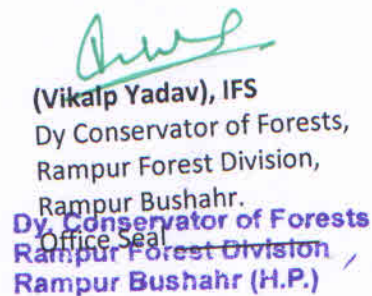 (Vikalp Yadav), IFS
Dy Conservator of Forests,
Rampur Forest Division,
Rampur Bushahr.
Dy. Conservator of Forests
Office Seal
Rampur Forest Division
Rampur Bushahr (H.P.)